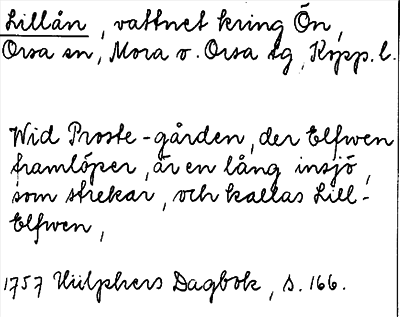 Lillån, vattnet kring Ön,
Orsa sn, Mora o. Orsa tg, Kopp. l.
Wid Proste-gården, der Elfwen
framlöper, är en lång insjö,
som strekar, och kallas Lill-
Elfwen,
1757 Hülphers Dagbok, s. 166.